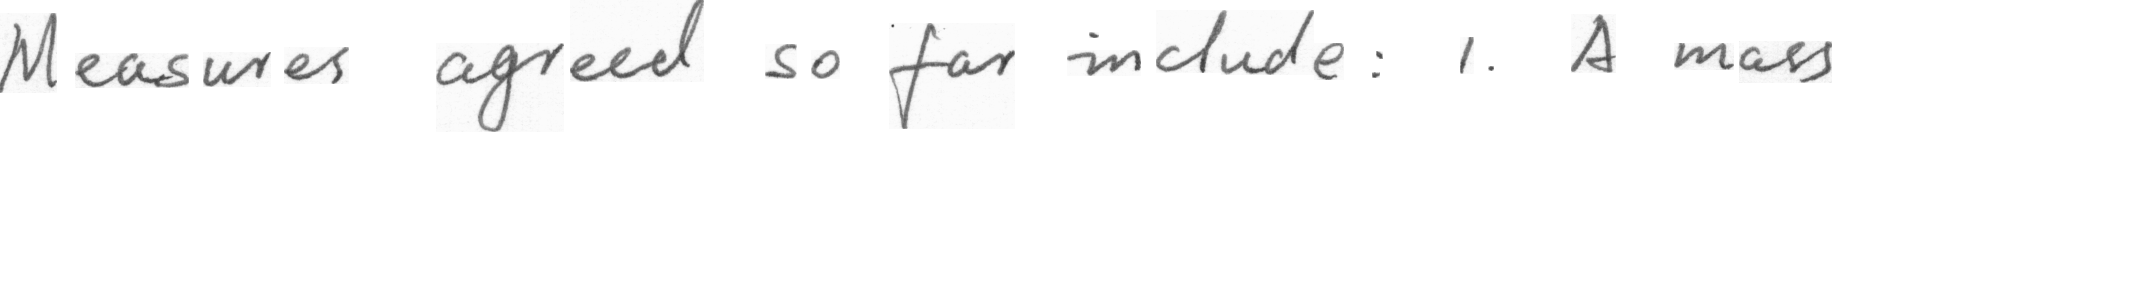 Measures agreed so far include: 1. A mass